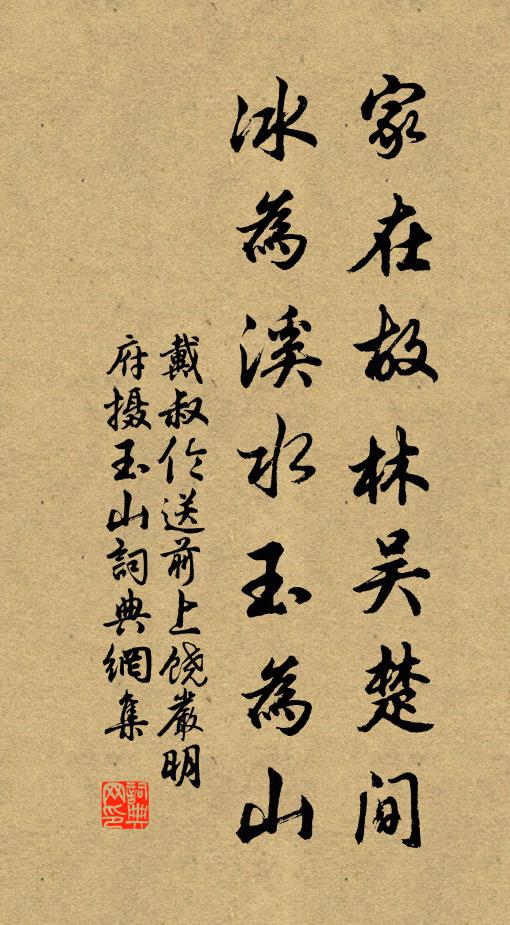 家在故林吴楚間
冰為溪水玉為山
戴叔伦送前上饶嚴明
府摄玉山詞典網集
詞典
网印